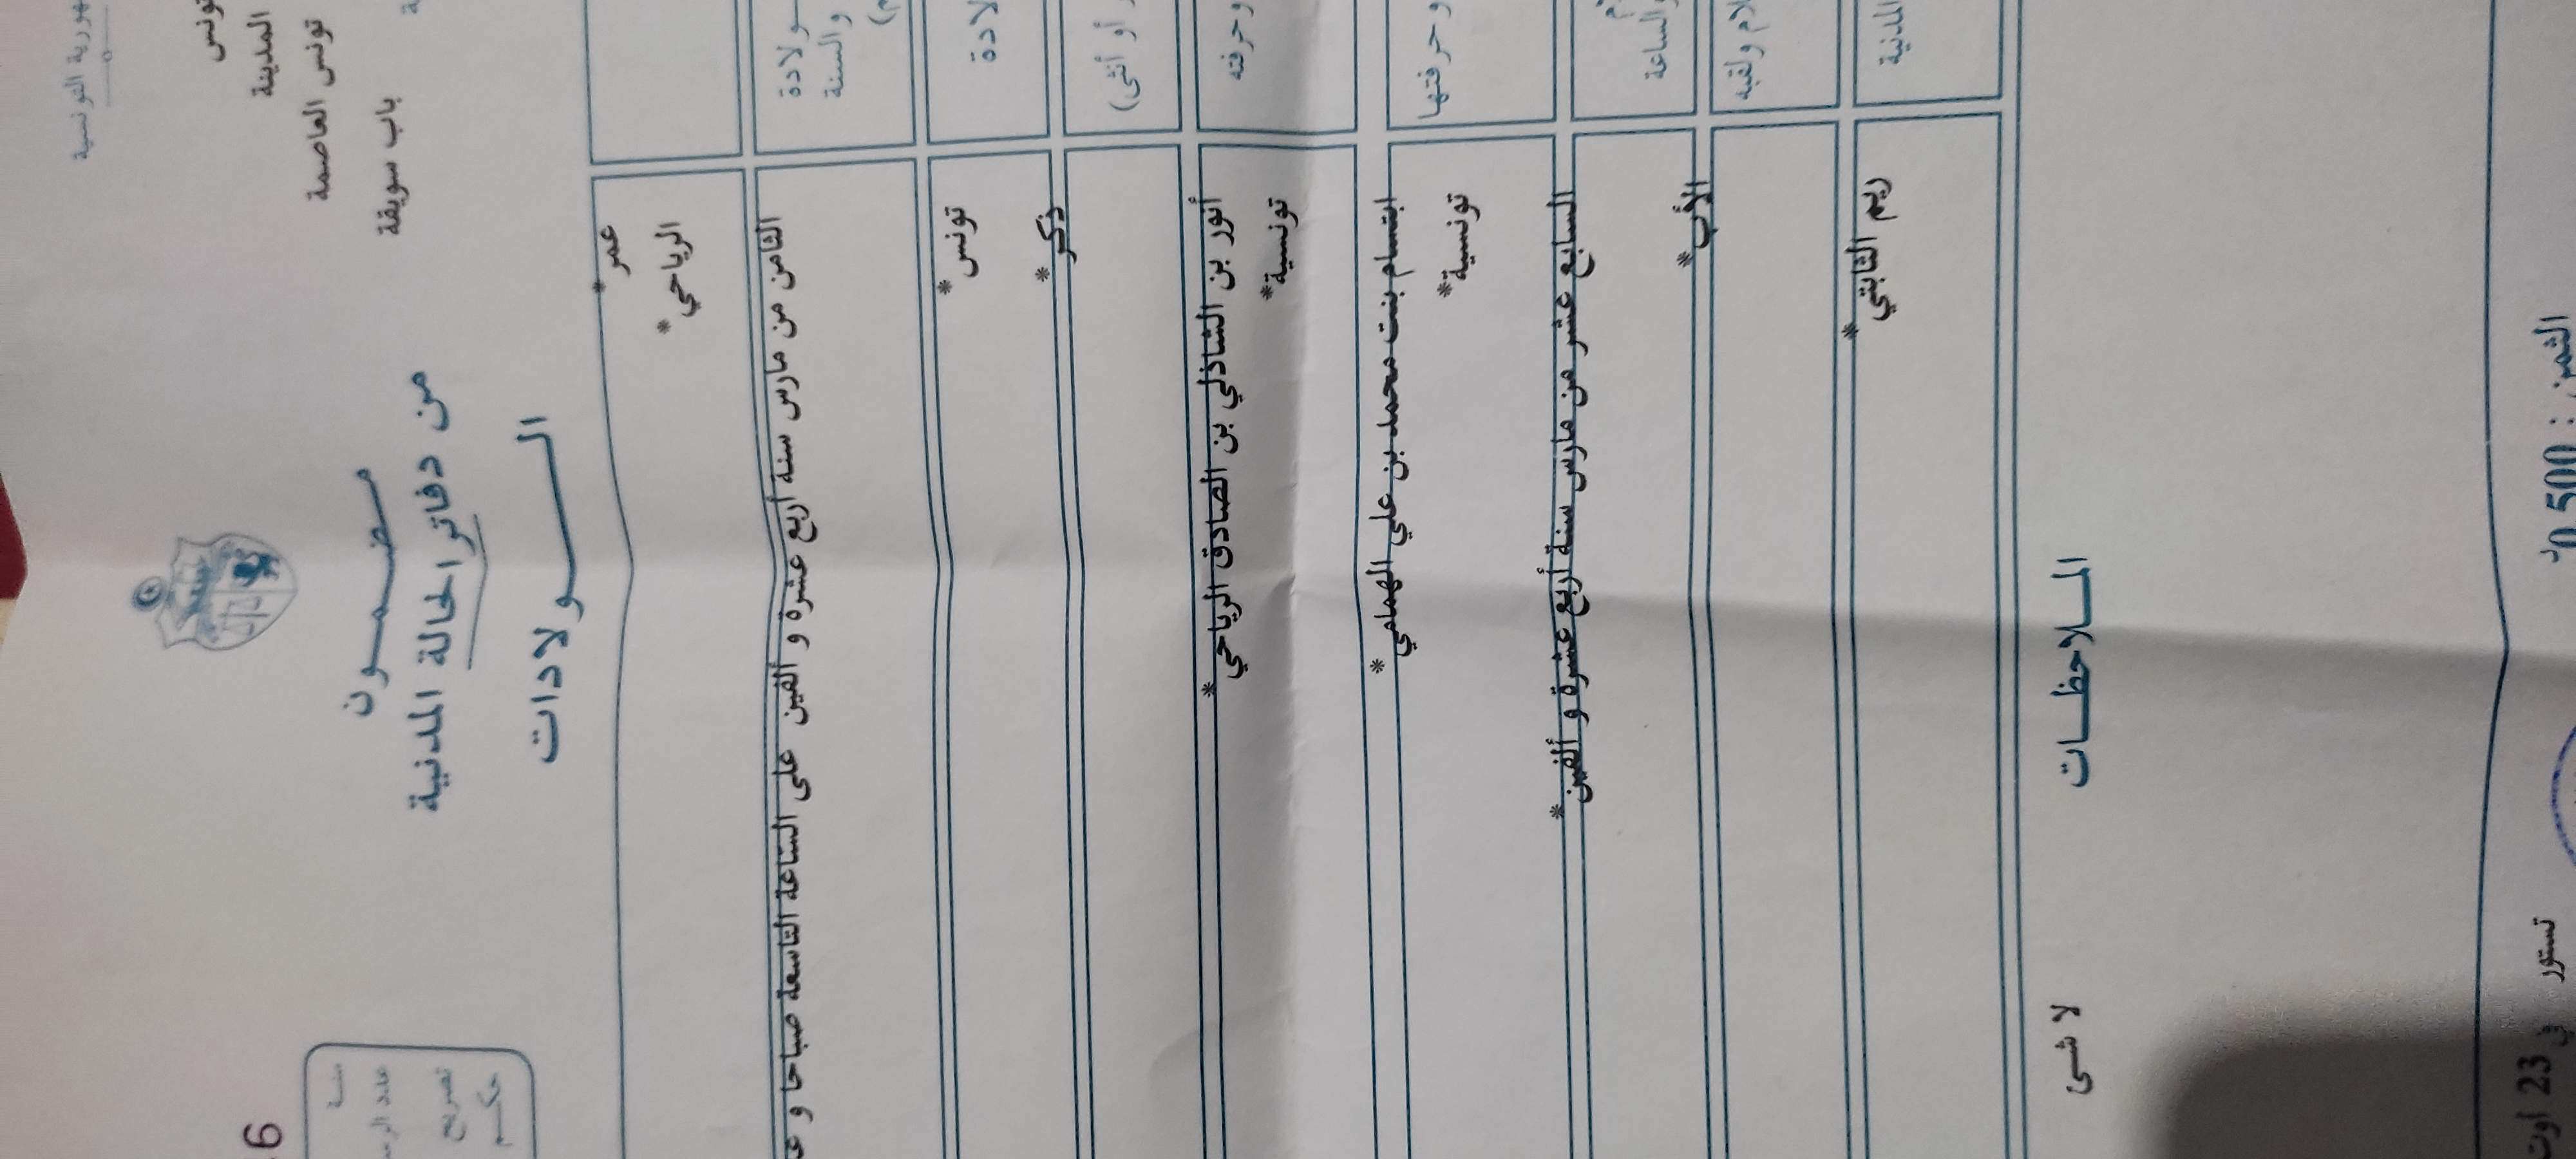 الجمهورية التونسية
تونس
المدينة
تونس العاصمة
باب سويقة
مضمون
من دفاتر الحالة المدنية
الولادات
سنة
تصريح
حكم
عمر *
الرياحي *
ولادة
والسنة
الثامن من مارس سنة أربع عشرة و ألفين على الساعة التاسعة صباحا و
تونس *
أو أنثى)
ذكر *
وحرفته
أنور بن الشاذلي بن الصادق الرياحي *
تونسية *
وحرفتها
ابتسام بنت محمد بن علي الهمامي *
تونسية *
والساعة
السابع عشر من مارس سنة أربع عشرة و ألفين *
ولقبه
الأب *
المدنية
ريم الثابتي *
الملاحظات
لا شئ
الثمن : 0,500
تستور في 23 اوت